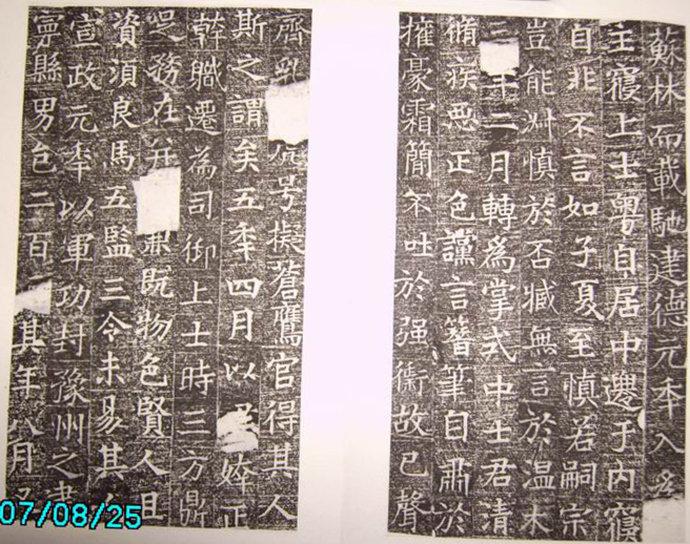 蘇林而載馳建德元秊入
主寢上士粵自居中遷于內寢
自非不言如子夏至慎若嗣宗
豈能斟慎於否臧無言於温木
年二月轉爲掌式中士君清
脩疾惡正色讜言簪筆自肅於
擁豪霜簡不吐於强衛故已聲
齊乳号擬蒼鷹官得其人
斯之謂矣五秊四月以婞正
幹職遷為司御上士時三方鼎
足務在并既物色賢人且
資須良馬五監三令未易其人
宣政元秊以軍功封豫州之
寧縣男邑二百其年八月
07/08/25